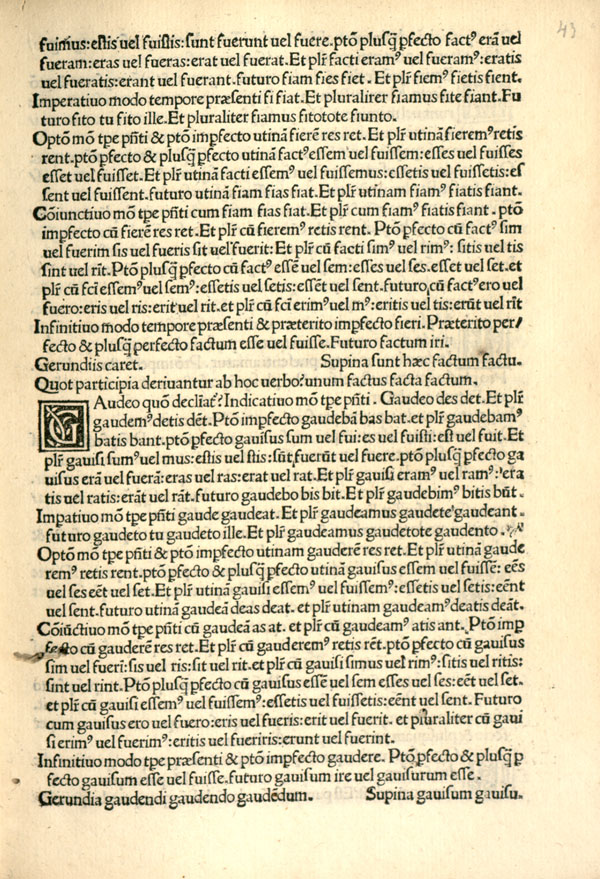 43
fuimus:estis uel fuistis:sunt fuerunt uel fuere.ptõ plusq̃ pfecto factꝰ erã uel
fueram:eras uel fueras:erat uel fuerat.Et plr̃ facti eramꝰ uel fueramꝰ:eratis
uel fueratis:erant uel fuerant.futuro fiam fies fiet. Et plr̃ fiemꝰ fietis fient.
Imperatiuo modo tempore præsenti fi fiat.Et pluraliter fiamus fite fiant.Fu
turo fito tu fito ille.Et pluraliter fiamus fitotote fiunto.
Optõ mõ tpe pñti & ptõ impfecto utinã fierẽ res ret. Et plr̃ utinã fieremꝰ retis
rent.ptõ pfecto & plusq̃ pfecto utinã factꝰ essem uel fuissem:esses uel fuisses
esset uel fuisset.Et plr̃ utinã facti essemꝰ uel fuissemus:essetis uel fuissetis:es
sent uel fuissent.futuro utinã fiam fias fiat.Et plr̃ utinam fiamꝰ fiatis fiant.
Cõiunctiuo mõ tpe pñti cum fiam fias fiat.Et plr̃ cum fiamꝰ fiatis fiant. ptõ
impfecto cũ fierẽ res ret. Et plr̃ cũ fieremꝰ retis rent. Ptõ pfecto cũ factꝰ sim
uel fuerim sis uel fueris sit uel fuerit: Et plr̃ cũ facti simꝰ uel rimꝰ: sitis uel tis
sint uel rĩt.Ptõ plusq̃ pfecto cũ factꝰ essẽ uel sem:esses uel ses.esset uel set.et
plr̃ cũ fci essemꝰ uel semꝰ:essetis uel setis:essẽt uel sent.futuro cũ factꝰ ero uel
fuero:eris uel ris:erit uel rit.et plr̃ cũ fci erimꝰ uel mꝰ:eritis uel tis:erũt uel rĩt
Infinitiuo modo tempore præsenti & præterito impfecto fieri. Præterito per/
fecto & plusq̃ perfecto factum esse uel fuisse.Futuro factum iri.
Gerundiis caret. Supina sunt hæc factum factu.
Quot participia deriuantur ab hoc uerbo?unum factus facta factum.
GAudeo quõ declĩat̃?Indicatiuo mõ tpe pñti. Gaudeo des det. Et plr̃
gaudemꝰ detis dẽt. Ptõ impfecto gaudebã bas bat.et plr̃ gaudebamꝰ
batis bant.ptõ pfecto gauisus sum uel fui:es uel fuisti:est uel fuit. Et
plr̃ gauisi sumꝰ uel mus:estis uel stis:sũt fuerũt uel fuere.ptõ plusq̃ pfecto ga
uisus erã uel fuerã:eras uel ras:erat uel rat.Et plr̃ gauisi eramꝰ uel ramꝰ:era
tis uel ratis:erãt uel rãt.futuro gaudebo bis bit.Et plr̃ gaudebimꝰ bitis bũt.
Impatiuo mõ tpe pñti gaude gaudeat.Et plr̃ gaudeamus gaudete gaudeant.
futuro gaudeto tu gaudeto ille.Et plr̃ gaudeamus gaudetote gaudento.
Optõ mõ tpe pñti & ptõ impfecto utinam gauderẽ res ret.Et plr̃ utinã gaude
remꝰ retis rent.ptõ pfecto & plusq̃ pfecto utinã gauisus essem uel fuissẽ: eẽs
uel ses eẽt uel set.Et plr̃ utinã gauisi essemꝰ uel fuissemꝰ:essetis uel setis:eẽnt
uel sent.futuro utinã gaudeã deas deat. et plr̃ utinam gaudeamꝰ deatis deãt.
Cõiũctiuo mõ tpe pñti cũ gaudeã as at. et plr̃ cũ gaudeamꝰ atis ant. Ptõ imp
fecto cũ gauderẽ res ret.Et plr̃ cũ gauderemꝰ retis rẽt.ptõ pfecto cũ gauisus
sim uel fueri:sis uel ris:sit uel rit.et plr̃ cũ gauisi simus uel rimꝰ:sitis uel ritis:
sint uel rint.Ptõ plusq̃ pfecto cũ gauisus essẽ uel sem esses uel ses:eẽt uel set.
et plr̃ cũ gauisi essemꝰ uel fuissemꝰ:essetis uel fuissetis:eẽnt uel sent. Futuro
cum gauisus ero uel fuero:eris uel fueris:erit uel fuerit. et pluraliter cũ gaui
si erimꝰ uel fuerimꝰ:eritis uel fueriris:erunt uel fuerint.
Infinitiuo modo tpe præsenti & ptõ impfecto gaudere. Ptõ pfecto & plusq̃ p
fecto gauisum esse uel fuisse.futuro gauisum ire uel gauisurum esse.
Gerundia gaudendi gaudendo gaudẽdum. Supina gauisum gauisu.